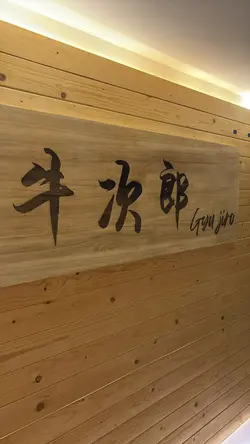 牛次郎 Gyu jiro